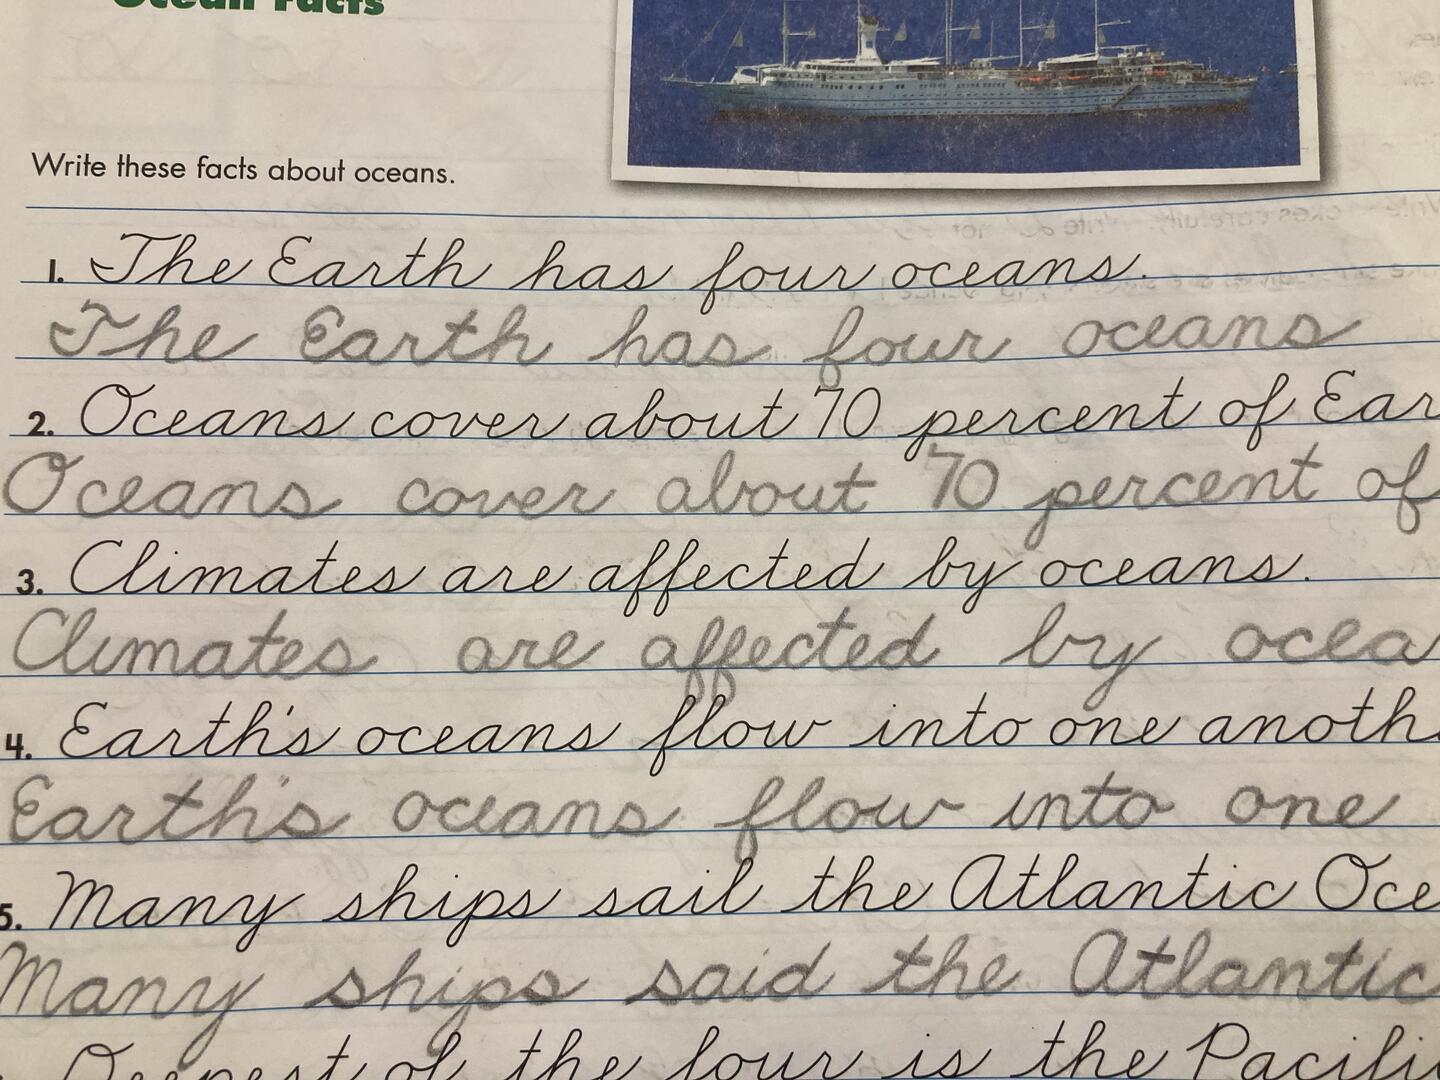 Ocean Facts
Write these facts about oceans.
1. The Earth has four oceans.
The Earth has four oceans
2. Oceans cover about 70 percent of Ear
Oceans cover about 70 percent of
3. Climates are affected by oceans.
Climates are affected by ocea
4. Earth's oceans flow into one anoth
Earth's oceans flow into one
5. Many ships sail the Atlantic Oce
Many ships said the Atlantic
Deepest of the four is the Pacific